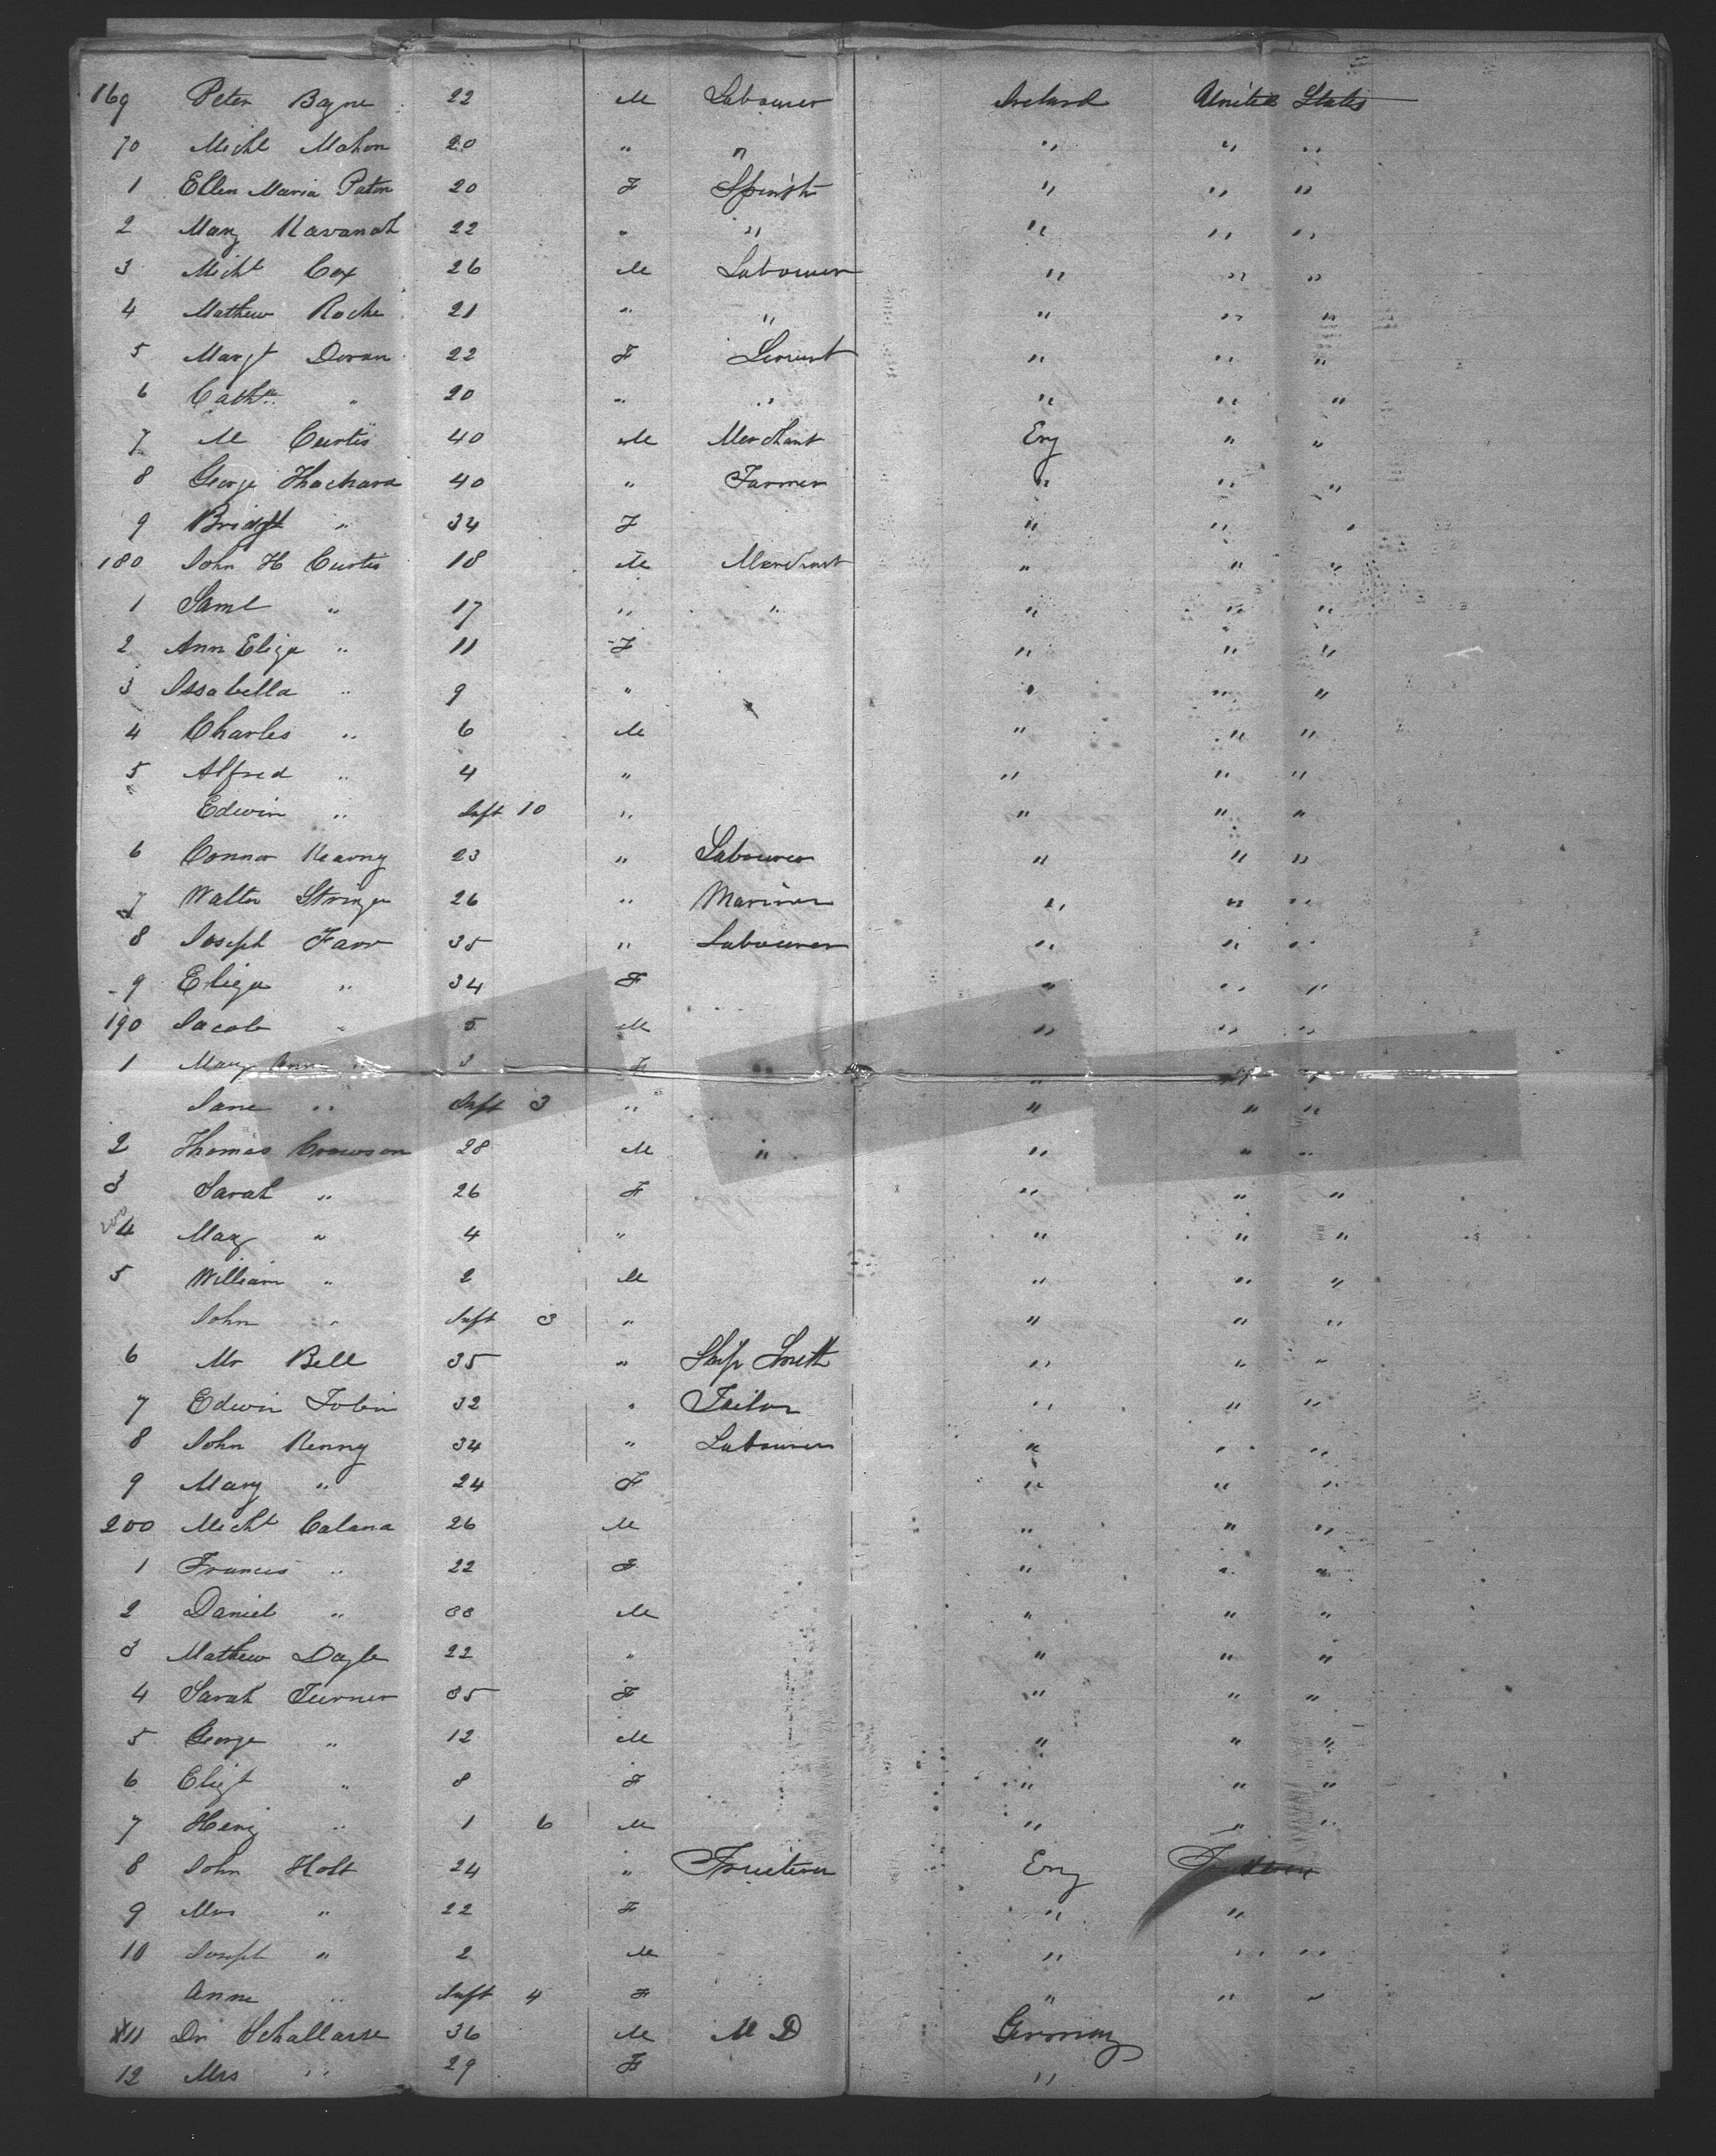 169 Peter Bayne 22 M Labourer Ireland United States
70 Michl Mahon 20 " " " " "
1 Ellen Maria Paton 20 F Spinstr " " "
2 Mary Kavanah 22 " " " " "
3 Michl Cox 26 M Labourer " " "
4 Mathew Roche 21 " " " " "
5 Margt Doran 22 F Servant " " "
6 Cathn " 20 " " " " "
7 M Curtis 40 M Merchant Eng " "
8 George 40 " Farmer " " "
9 Bridgt " 34 F " " "
180 John H Curtis 18 M Merchant " " "
1 Saml " 17 " " " " "
2 Ann Eliza " 11 F " " "
3 Issabella " 9 " " " "
4 Charles " 6 M " " "
5 Alfred " 4 " " " "
Edwin " Inft 10 " " " "
6 Connor Kearny 23 " Labourer " " "
7 Walter Stringer 26 " Mariner " " "
8 Joseph Farr 35 " Labourer " " "
9 Eliza " 34 F " " "
190 Jacob " 5 M " " "
1 Mary Ann " 3 F " " "
Jane " Inft 3 " " " "
2 Thomas Crowson 28 M " " " "
3 Sarah " 26 F " " "
200
4 Mary " 4 " " " "
5 William " 2 M " " "
John " Inft 3 " " " "
6 Mr Bell 35 " Ship Smith " " "
7 Edwin Tobin 32 " Tailor " " "
8 John Kenny 34 " Labourer " " "
9 Mary " 24 F " " "
200 Michl Calana 26 M " " "
1 Frances " 22 F " " "
2 Daniel " 33 M " " "
3 Mathew Doyle 22 " " " "
4 Sarah Turner 35 F " " "
5 George " 12 M " " "
6 Elizt " 8 F " " "
7 Henry " 1 6 M " " "
8 John Holt 24 " Fruiterer Eng
9 Mrs " 22 F " "
10 Joseph " 2 M " " "
Anne " Inft 4 F " " "
11 Dr Schallasse 36 M M D Germany
12 Mrs " 29 F "